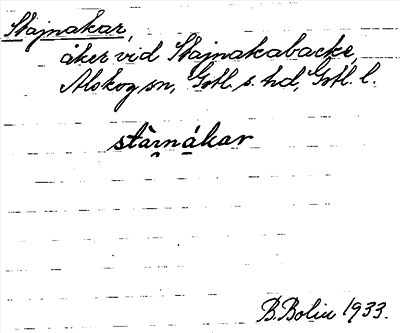 Stajnakar,
åker vid Stajnakabacke,
Alskog sn, Gotl. s. hd, Gotl. l.
stàrnákar
B. Bolin 1933.